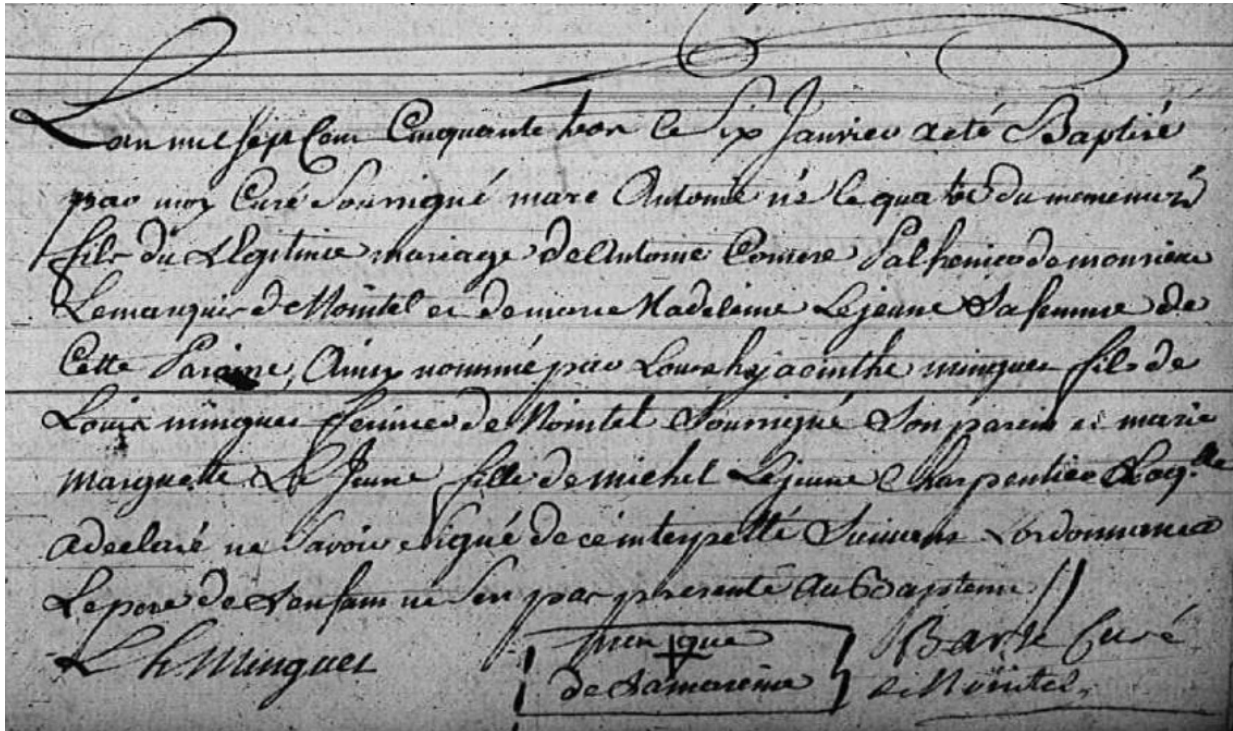 Lan mil sept Cent Cinquante trois le Six Janvier a eté Baptisé
par moy Curé Soussigné marc Antoine né le quatre du meme mois
fils du Legitime mariage de Antoine Comere Palfrenier de monsieur
Le marquis de Nointel et de marie Madeleine Lejeune Sa femme de
Cette Paroisse, Ainsy nommé par Louis hyacinthe minguet fils de
Louis minguet fermier de Nointel Soussigné Son parein et marie
Marguette Le Jeune fille de michel Lejeune Charpentier Laq.lle
a declaré ne Savoir Signé de ce interpellé Suivant Lordonnance
Le pere de Lenfant ne Sest pas presenté au Bapteme //
L h Minguet
marque
de La mareine
Curé
de Nointel